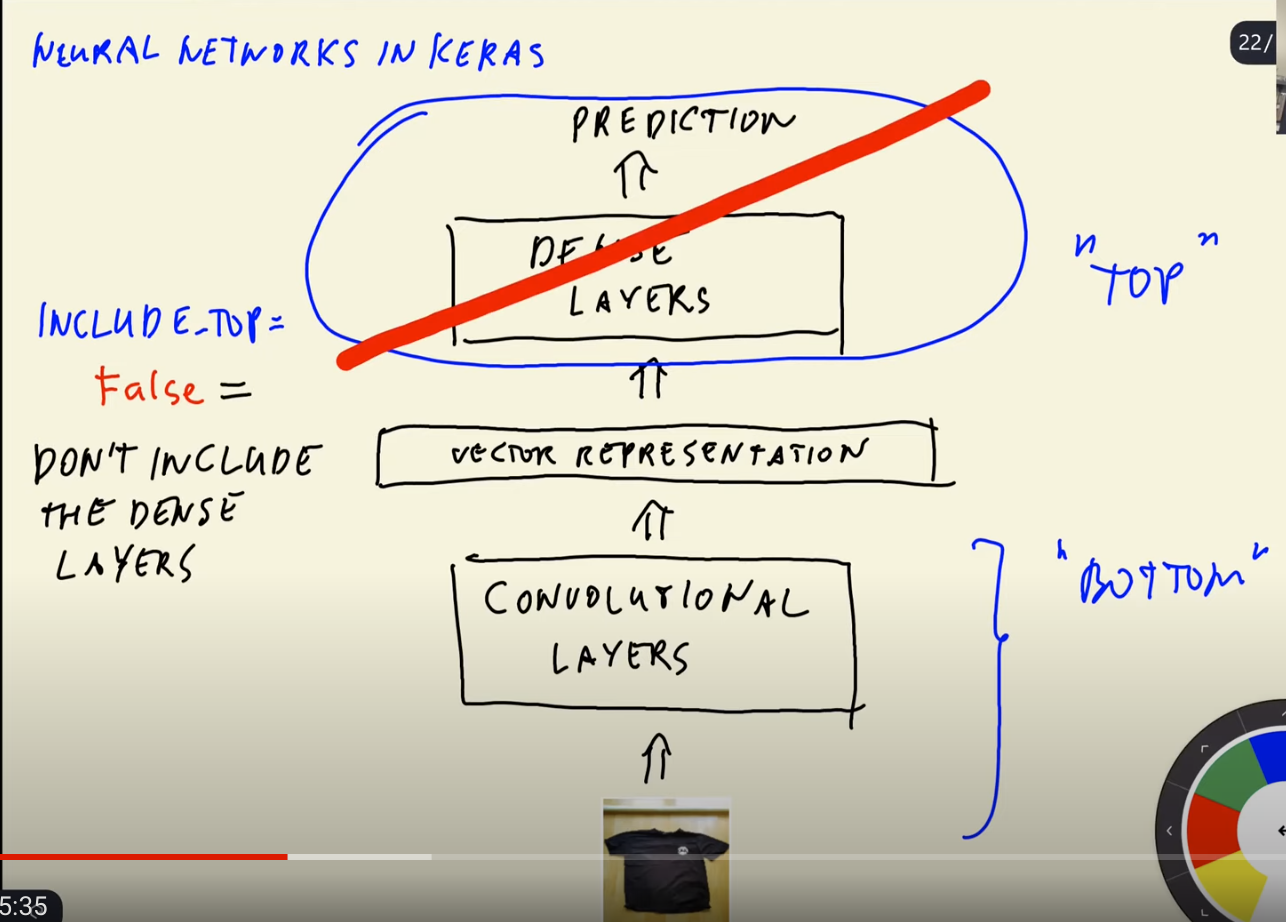 NEURAL NETWORKS IN KERAS
22/
PREDICTION
DENSE
LAYERS
"TOP"
INCLUDE_TOP=
False =
DON'T INCLUDE
THE DENSE
LAYERS
VECTOR REPRESENTATION
CONVOLUTIONAL
LAYERS
"BOTTOM"
5:35